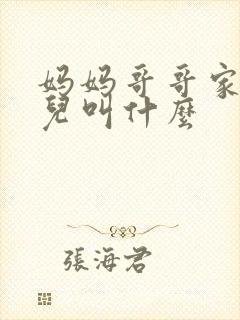 妈妈哥哥家
兒叫什麼
張海君